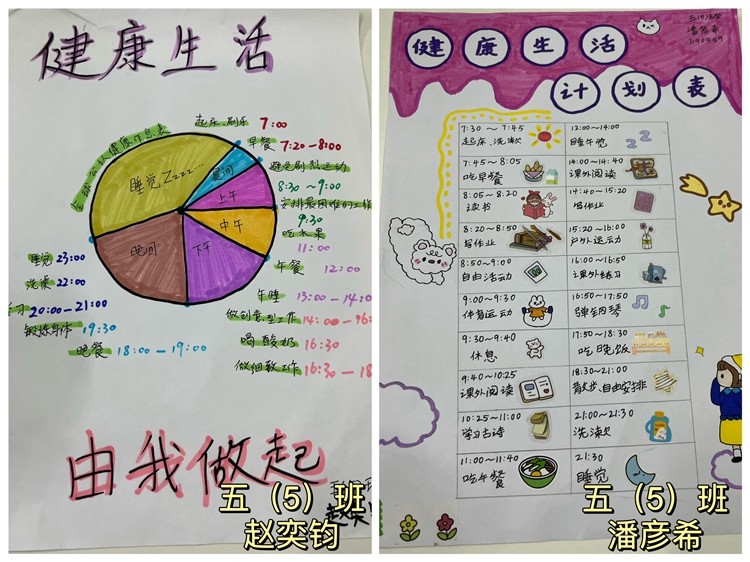 健康生活
起床、刷乐 7:00
早餐 7:20-8:00
避免剧烈运动
8:30~9:00
安排最困难的工作
9:30
吃水果
11:00
午餐 12:00
午睡 13:00-14:0
做创意型工作 14:00-16:
喝酸奶 16:30
做细致工作 16:30-18
睡觉Zzzz....
晨间
上午
中午
下午
晚间
睡觉 23:00
洗澡 22:00
习 20:00-21:00
锻炼身体 19:30
晚餐 18:00-19:00
由我做起
五（5）班
赵奕钧
健康生活
计划表
潘彦希
7:30~7:45
起床、洗漱
12:00~14:00
睡午觉
7:45~8:05
吃早餐
14:00~14:40
课外阅读
8:05~8:20
读书
14:40~15:20
写作业
8:20~8:50
写作业
15:20~16:00
户外运动
8:50~9:00
自由活动
16:00~16:50
课外练习
9:00~9:30
体育运动
16:50~17:50
弹钢琴
9:30~9:40
休息
17:50~18:30
吃晚饭
9:40~10:25
课外阅读
18:30~21:00
散步、自由安排
10:25~11:00
学习古诗
21:00~21:30
洗漱
11:00~11:40
吃午餐
21:30
睡觉
五（5）班
潘彦希